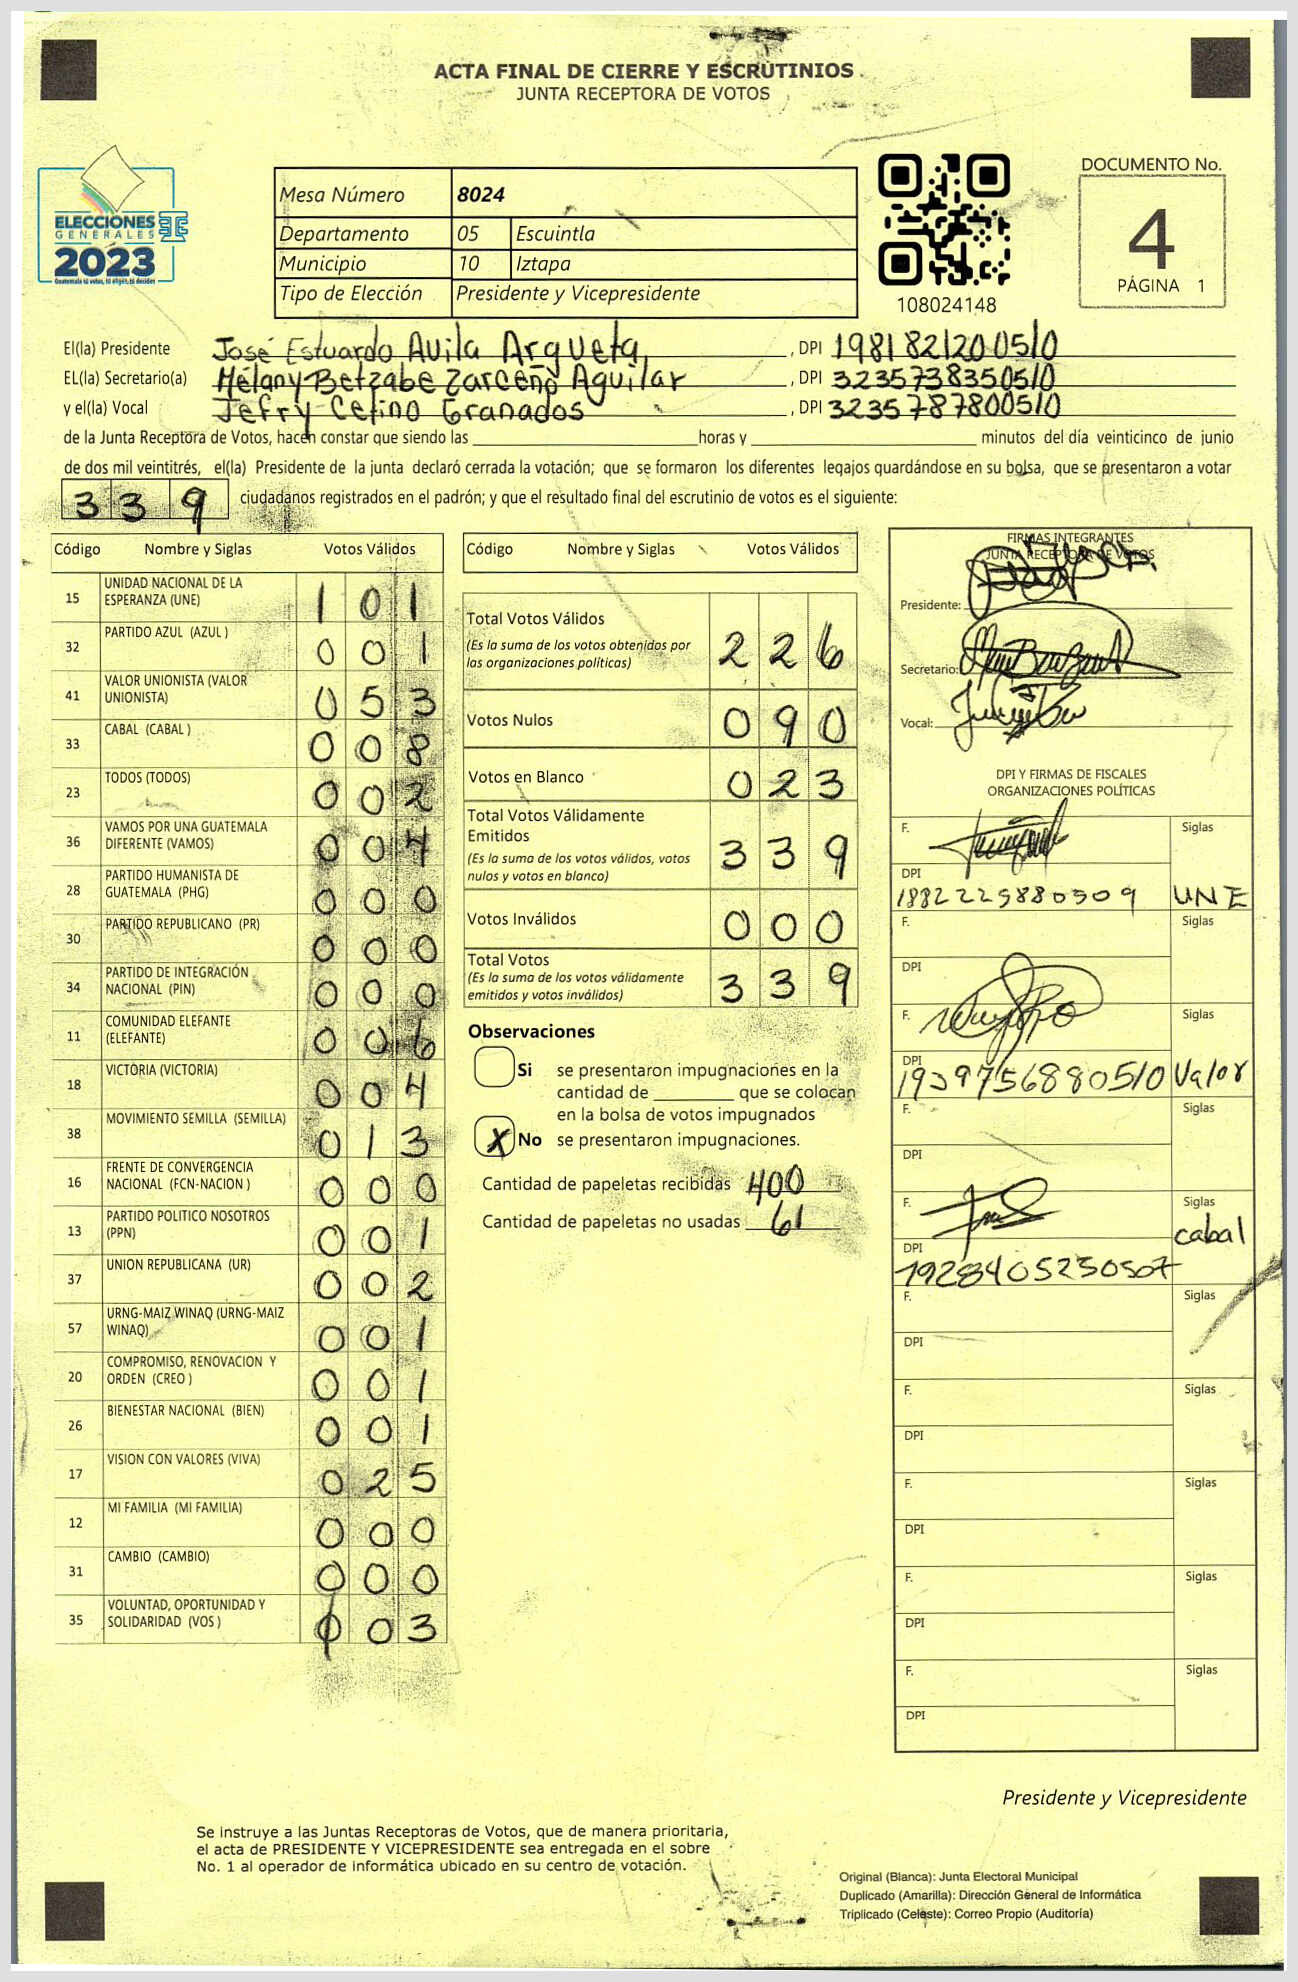 ACTA FINAL DE CIERRE Y ESCRUTINIOS
JUNTA RECEPTORA DE VOTOS
ELECCIONES
GENERALES
2023
Guatemala tú votas, tú eliges, tú decides
Mesa Número 8024
Departamento 05 Escuintla
Municipio 10 Iztapa
Tipo de Elección Presidente y Vicepresidente
108024148
DOCUMENTO No.
4
PÁGINA 1
El(la) Presidente José Estuardo Avila Argueta, , DPI 1981821200510
EL(la) Secretario(a) Mélany Betzabe Zarceño Aguilar , DPI 3235738350510
y el(la) Vocal Jefry Cefino Granados , DPI 3235787800510
de la Junta Receptora de Votos, hacen constar que siendo las horas y minutos del día veinticinco de junio
de dos mil veintitrés, el(la) Presidente de la junta declaró cerrada la votación; que se formaron los diferentes legajos guardándose en su bolsa, que se presentaron a votar
339 ciudadanos registrados en el padrón; y que el resultado final del escrutinio de votos es el siguiente:
Código Nombre y Siglas Votos Válidos
15 UNIDAD NACIONAL DE LA
ESPERANZA (UNE) 101
32 PARTIDO AZUL (AZUL ) 001
41 VALOR UNIONISTA (VALOR
UNIONISTA) 053
33 CABAL (CABAL ) 008
23 TODOS (TODOS) 002
36 VAMOS POR UNA GUATEMALA
DIFERENTE (VAMOS) 004
28 PARTIDO HUMANISTA DE
GUATEMALA (PHG) 000
30 PARTIDO REPUBLICANO (PR) 000
34 PARTIDO DE INTEGRACIÓN
NACIONAL (PIN) 000
11 COMUNIDAD ELEFANTE
(ELEFANTE) 006
18 VICTORIA (VICTORIA) 004
38 MOVIMIENTO SEMILLA (SEMILLA) 013
16 FRENTE DE CONVERGENCIA
NACIONAL (FCN-NACION ) 000
13 PARTIDO POLITICO NOSOTROS
(PPN) 001
37 UNION REPUBLICANA (UR) 002
57 URNG-MAIZ WINAQ (URNG-MAIZ
WINAQ) 001
20 COMPROMISO, RENOVACION Y
ORDEN (CREO ) 001
26 BIENESTAR NACIONAL (BIEN) 001
17 VISION CON VALORES (VIVA) 025
12 MI FAMILIA (MI FAMILIA) 000
31 CAMBIO (CAMBIO) 000
35 VOLUNTAD, OPORTUNIDAD Y
SOLIDARIDAD (VOS ) 003
Código Nombre y Siglas Votos Válidos
Total Votos Válidos
(Es la suma de los votos obtenidos por
las organizaciones políticas) 226
Votos Nulos 090
Votos en Blanco 023
Total Votos Válidamente
Emitidos
(Es la suma de los votos válidos, votos
nulos y votos en blanco) 339
Votos Inválidos 000
Total Votos
(Es la suma de los votos válidamente
emitidos y votos inválidos) 339
Observaciones
Si se presentaron impugnaciones en la
cantidad de que se colocan
en la bolsa de votos impugnados
X No se presentaron impugnaciones.
Cantidad de papeletas recibidas 400
Cantidad de papeletas no usadas 61
FIRMAS INTEGRANTES
JUNTA RECEPTORA DE VOTOS
Presidente:
Secretario:
Vocal:
DPI Y FIRMAS DE FISCALES
ORGANIZACIONES POLÍTICAS
F. Siglas
DPI
1882225880509 UNE
F. Siglas
DPI
F. Siglas
DPI
1939756880510 Valor
F. Siglas
DPI
F. Siglas
cabal
DPI
1928405250507
F. Siglas
DPI
F. Siglas
DPI
F. Siglas
DPI
F. Siglas
DPI
F. Siglas
DPI
Presidente y Vicepresidente
Se instruye a las Juntas Receptoras de Votos, que de manera prioritaria,
el acta de PRESIDENTE Y VICEPRESIDENTE sea entregada en el sobre
No. 1 al operador de informática ubicado en su centro de votación.
Original (Blanca): Junta Electoral Municipal
Duplicado (Amarilla): Dirección General de Informática
Triplicado (Celeste): Correo Propio (Auditoría)